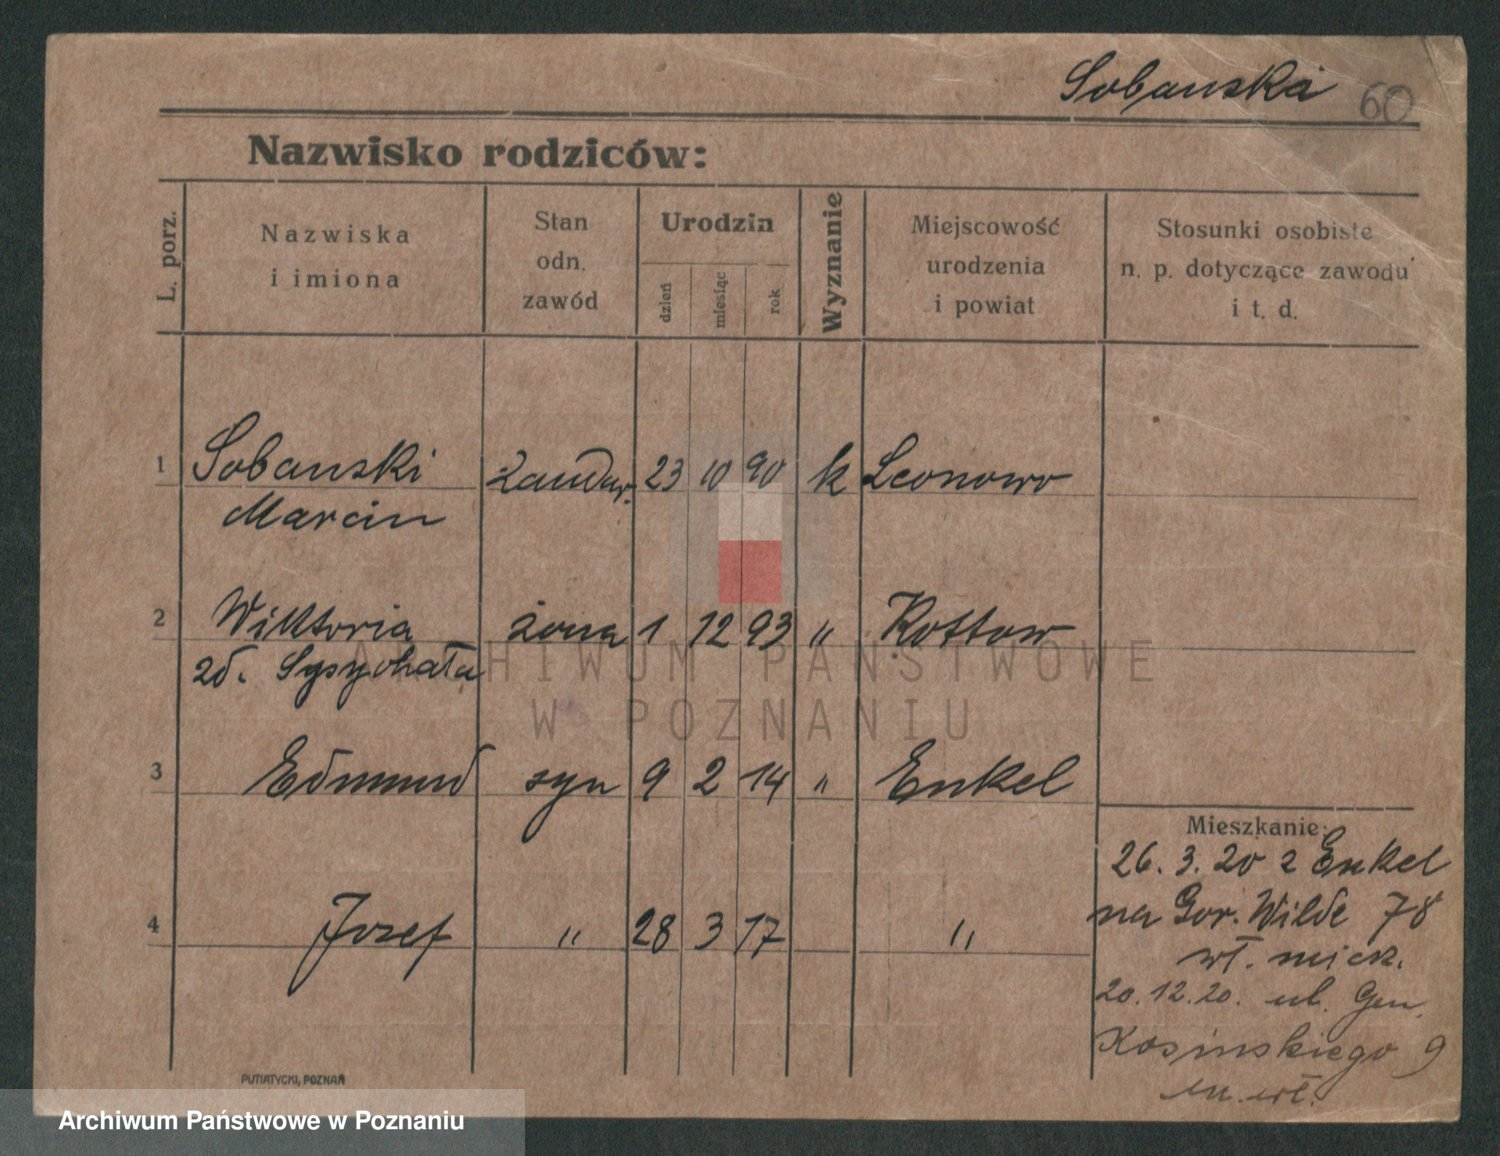 Sobanski 60
Nazwisko rodziców:
L. porz.
Nazwiska
i imiona
Stan
odn.
zawód
Urodzin
dzień
miesiąc
rok
Wyznanie
Miejscowość
urodzenia
i powiat
Stosunki osobiste
n. p. dotyczące zawodu
i t. d.
1 Sobanski Żandar. 23 10 90 k Leonowo
Marcin
2 Wiktoria żona 1 12 93 " Kottow
zd. Szyszchata
3 Edmund syn 9 2 14 " Enkel
4 Jozef " 28 3 17 "
Mieszkanie:
26.3.20 z Enkel
na Gor. Wilde 78
wł. miesz.
20.12.20. ul. Gen.
Kosinskiego 9
m. wł.
PUTIATYCKI, POZNAŃ
ARCHIWUM PAŃSTWOWE
W POZNANIU
Archiwum Państwowe w Poznaniu